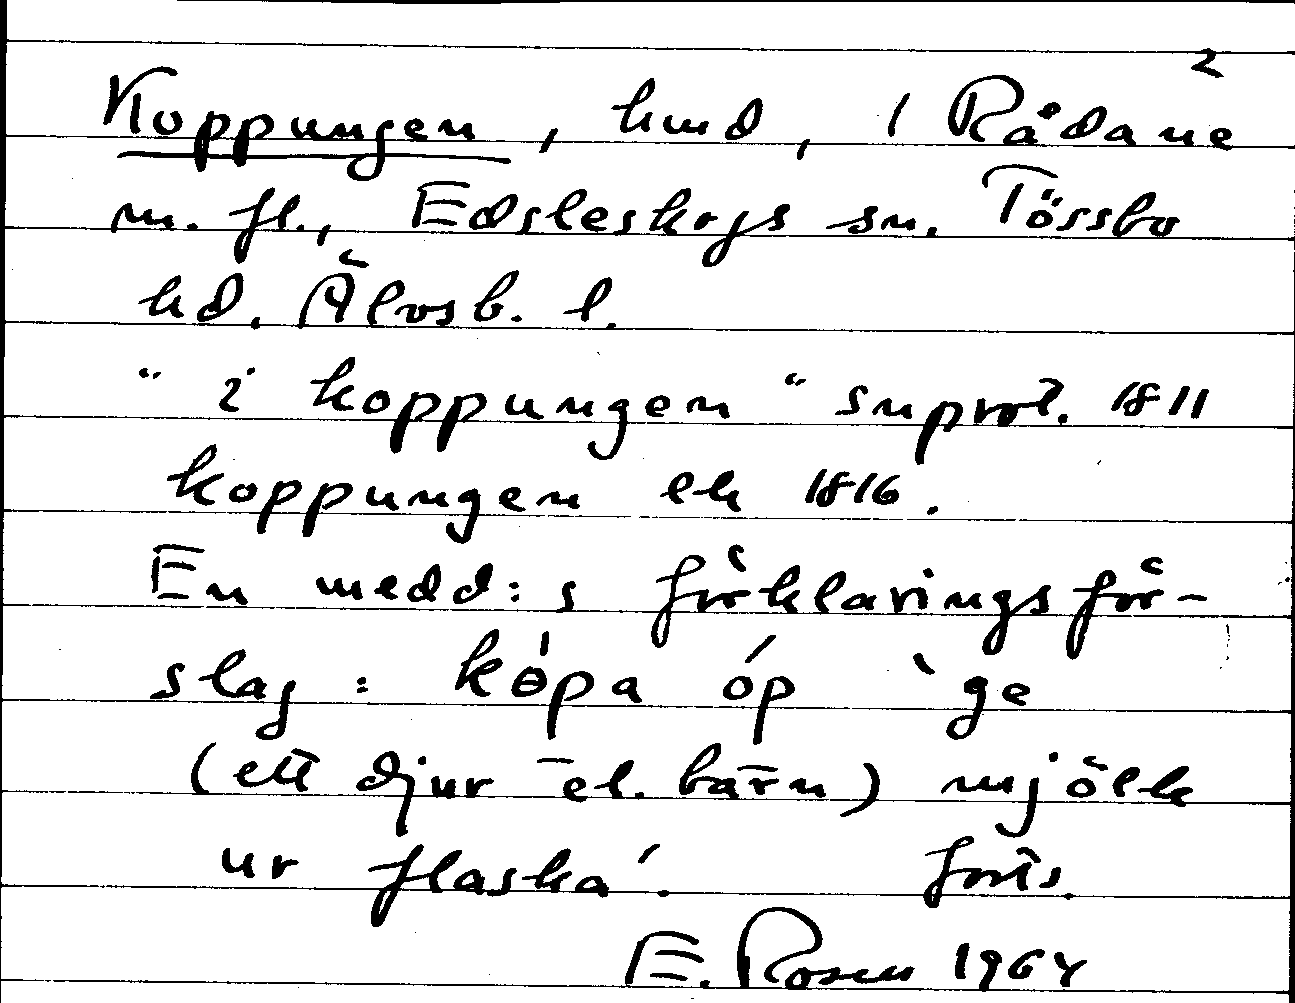 2
Koppungen, hmd, 1 Rådane
m. fl., Edsleskogs sn. Tössbo
hd. Älvsb. l.
"i koppungen" snprot. 1811
koppungen ek 1816.
En medd:s förklaringsför-
slag: köpa óp 'ge
(ett djur el. barn) mjölk
ur flaska'. forts.
E. Rosen 1964